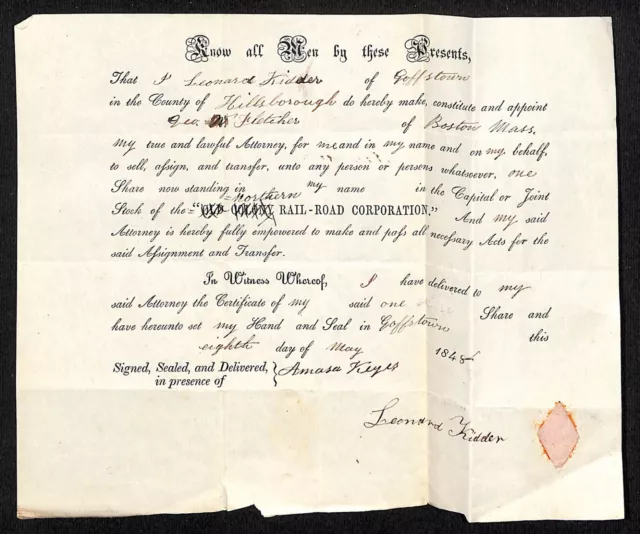 Know all Men by these Presents,
That I Leonard Kidder of Goffstown
in the County of Hillsborough do hereby make, constitute and appoint
Geo. W Fletcher of Boston Mass.
my true and lawful Attorney, for me and in my name and on my behalf,
to sell, assign, and transfer, unto any person or persons whatsoever, one
Share now standing in my name in the Capital or Joint
Northern
Stock of the "OLD COLONY RAIL-ROAD CORPORATION." And my said
Attorney is hereby fully empowered to make and pass all necessary Acts for the
said Assignment and Transfer.
In Witness Whereof, I have delivered to my
said Attorney the Certificate of my said one Share and
have hereunto set my Hand and Seal in Goffstown this
eighth day of May 184
Signed, Sealed, and Delivered, } Amasa Keyes
in presence of
Leonard Kidder